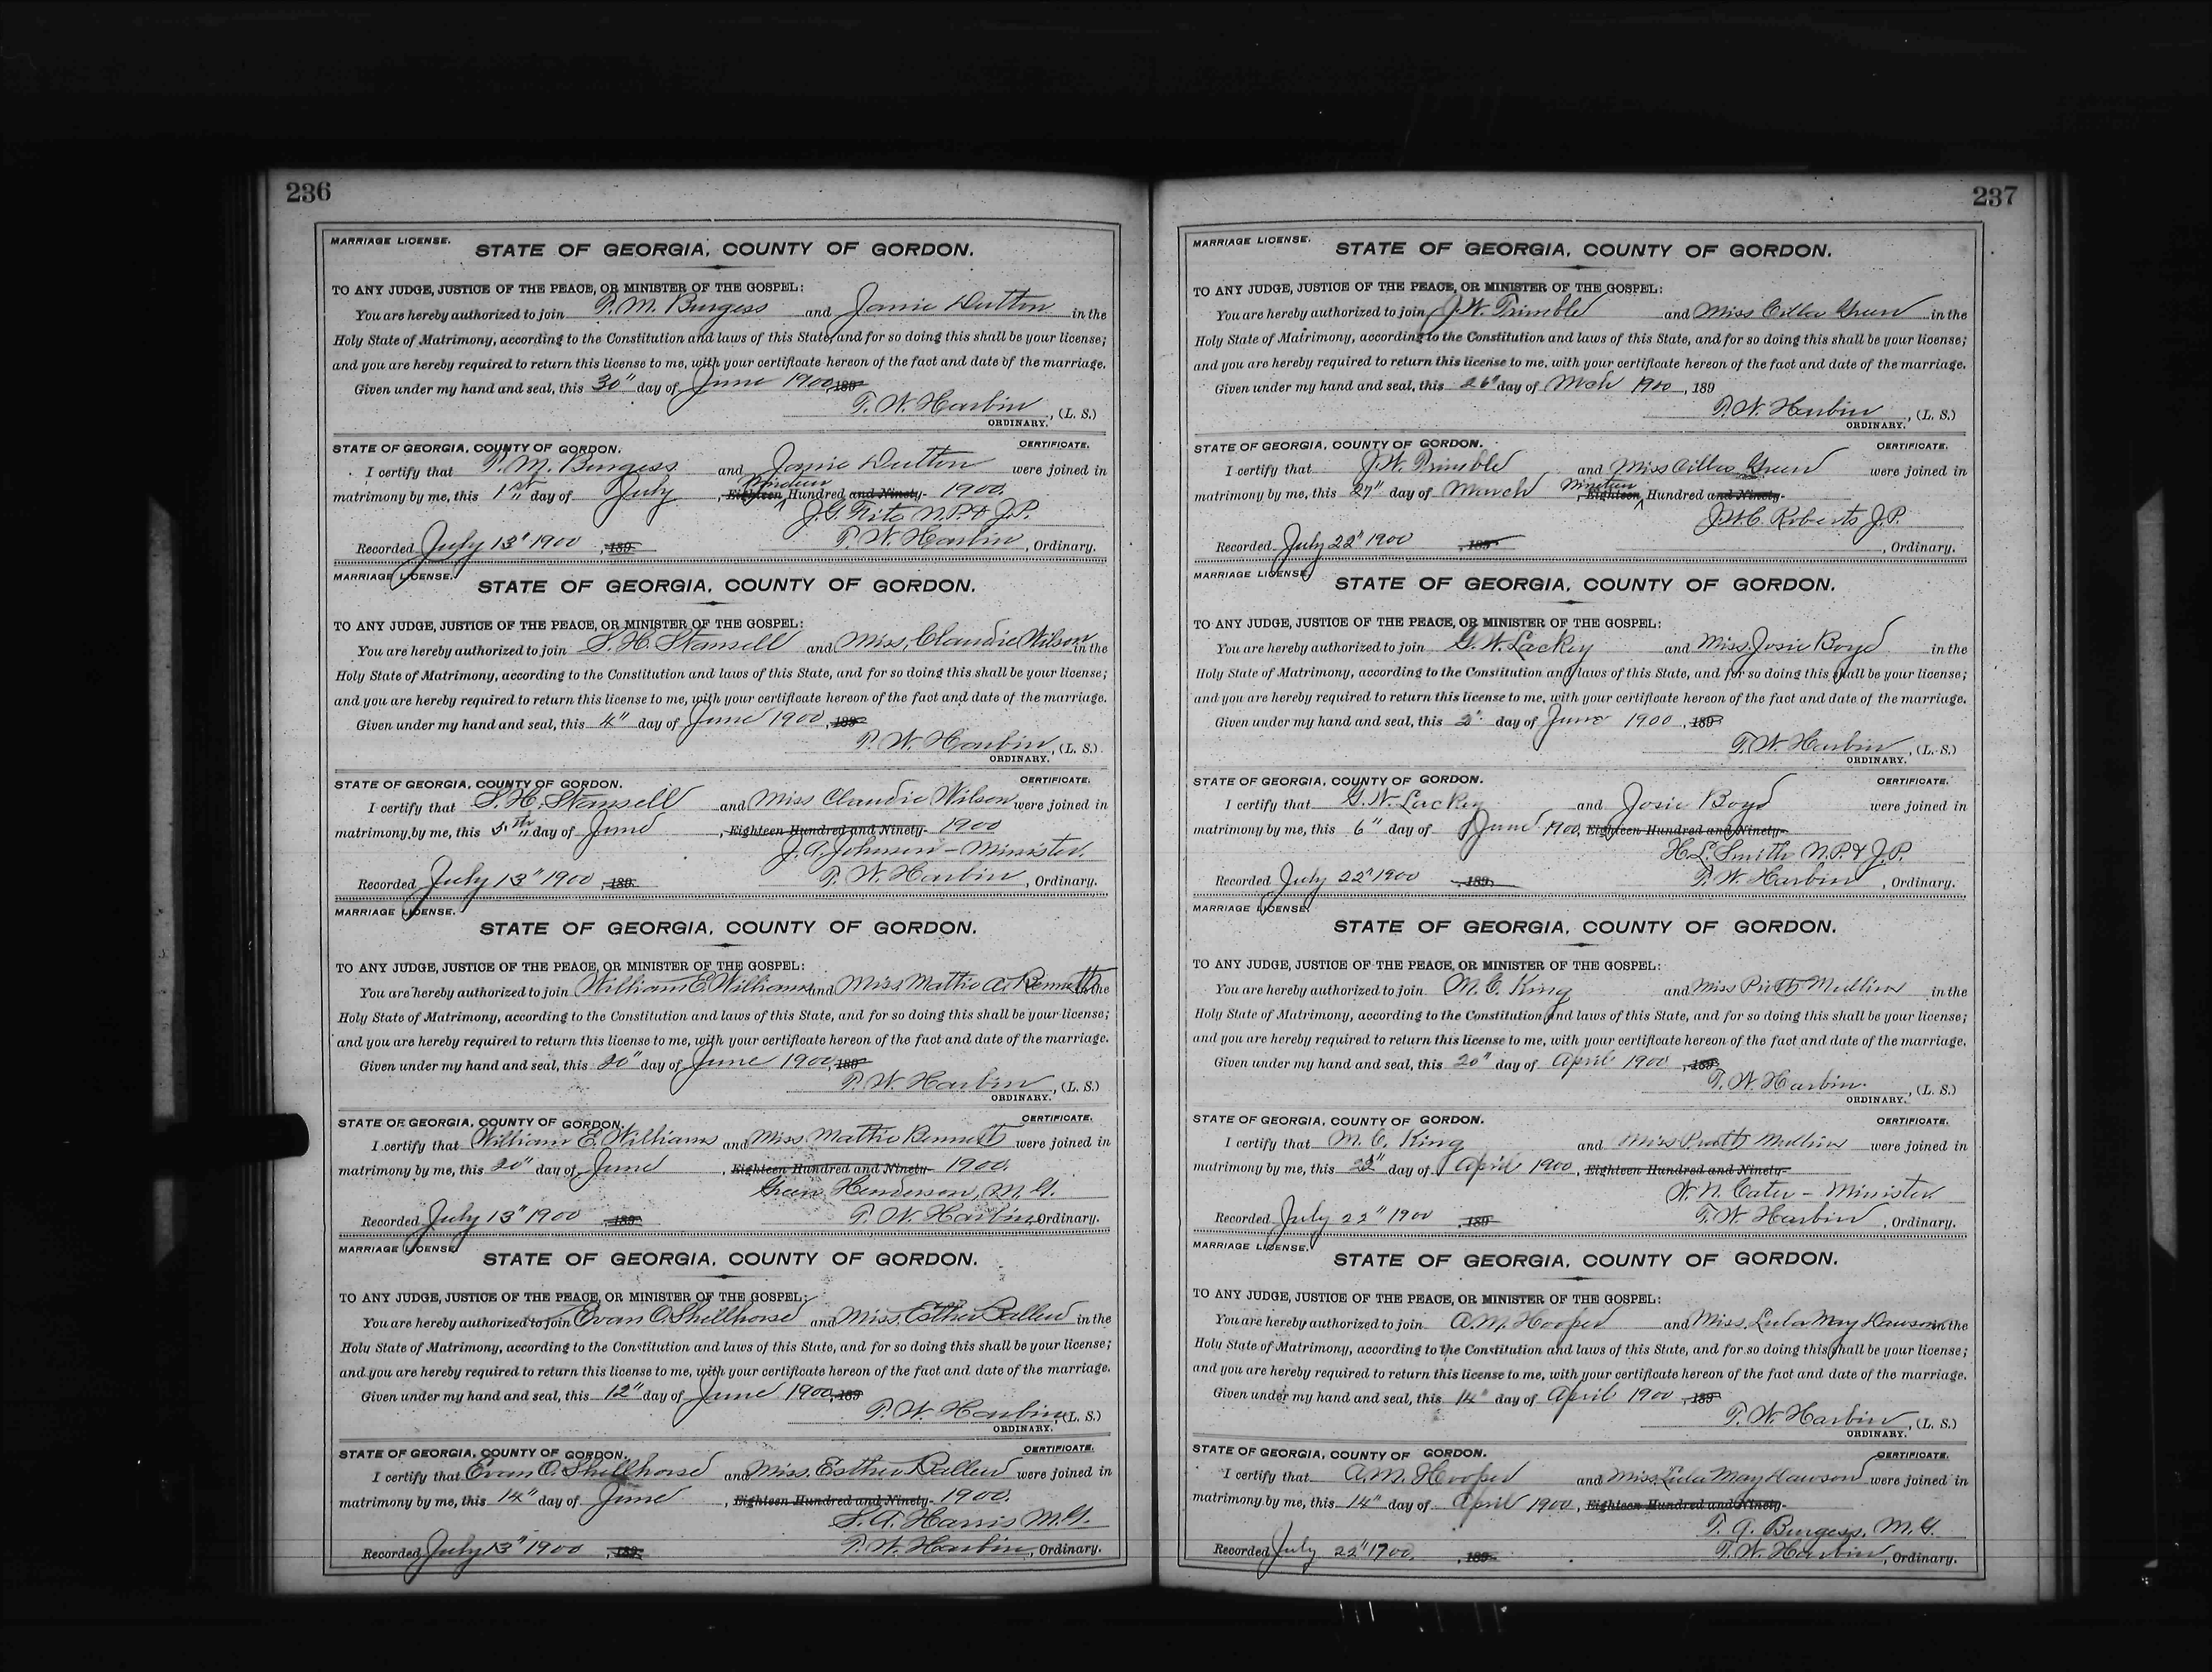 236
MARRIAGE LICENSE.
STATE OF GEORGIA, COUNTY OF GORDON.
TO ANY JUDGE, JUSTICE OF THE PEACE, OR MINISTER OF THE GOSPEL:
You are hereby authorized to join T. M. Burgess and Janie Dutton in the
Holy State of Matrimony, according to the Constitution and laws of this State, and for so doing this shall be your license;
and you are hereby required to return this license to me, with your certificate hereon of the fact and date of the marriage.
Given under my hand and seal, this 30" day of June 1900, 189
T. W. Harbin, (L. S.)
ORDINARY.
STATE OF GEORGIA, COUNTY OF GORDON. CERTIFICATE.
I certify that T. M. Burgess and Janie Dutton were joined in
matrimony by me, this 1st day of July, Eighteen Nineteen Hundred and Ninety- 1900.
J. G. Fite N.P. & J.P.
Recorded July 13" 1900, 189 T. W. Harbin, Ordinary.
MARRIAGE LICENSE.
STATE OF GEORGIA, COUNTY OF GORDON.
TO ANY JUDGE, JUSTICE OF THE PEACE, OR MINISTER OF THE GOSPEL:
You are hereby authorized to join S. H. Stansell and Miss Claudie Wilson in the
Holy State of Matrimony, according to the Constitution and laws of this State, and for so doing this shall be your license;
and you are hereby required to return this license to me, with your certificate hereon of the fact and date of the marriage.
Given under my hand and seal, this 4" day of June 1900, 189
T. W. Harbin, (L. S.)
ORDINARY.
STATE OF GEORGIA, COUNTY OF GORDON. CERTIFICATE.
I certify that S. H. Stansell and Miss Claudie Wilson were joined in
matrimony by me, this 5th day of June, Eighteen Hundred and Ninety- 1900
J. A. Johnson - Minister.
Recorded July 13" 1900, 189 T. W. Harbin, Ordinary.
MARRIAGE LICENSE.
STATE OF GEORGIA, COUNTY OF GORDON.
TO ANY JUDGE, JUSTICE OF THE PEACE, OR MINISTER OF THE GOSPEL:
You are hereby authorized to join William E. Williams and Miss Mattie A. Bennett in the
Holy State of Matrimony, according to the Constitution and laws of this State, and for so doing this shall be your license;
and you are hereby required to return this license to me, with your certificate hereon of the fact and date of the marriage.
Given under my hand and seal, this 20" day of June 1900, 189
T. W. Harbin, (L. S.)
ORDINARY.
STATE OF GEORGIA, COUNTY OF GORDON. CERTIFICATE.
I certify that William E. Williams and Miss Mattie Bennett were joined in
matrimony by me, this 20" day of June, Eighteen Hundred and Ninety- 1900.
Green Henderson, M.G.
Recorded July 13" 1900, 189 T. W. Harbin, Ordinary.
MARRIAGE LICENSE.
STATE OF GEORGIA, COUNTY OF GORDON.
TO ANY JUDGE, JUSTICE OF THE PEACE, OR MINISTER OF THE GOSPEL:
You are hereby authorized to join Evan O. Shellhorse and Miss Esther Ballew in the
Holy State of Matrimony, according to the Constitution and laws of this State, and for so doing this shall be your license;
and you are hereby required to return this license to me, with your certificate hereon of the fact and date of the marriage.
Given under my hand and seal, this 12" day of June 1900, 189
T. W. Harbin, (L. S.)
ORDINARY.
STATE OF GEORGIA, COUNTY OF GORDON. CERTIFICATE.
I certify that Evan O. Shellhorse and Miss Esther Ballew were joined in
matrimony by me, this 14" day of June, Eighteen Hundred and Ninety- 1900.
S. A. Harris M.G.
Recorded July 13" 1900, 189 T. W. Harbin, Ordinary.
237
MARRIAGE LICENSE.
STATE OF GEORGIA, COUNTY OF GORDON.
TO ANY JUDGE, JUSTICE OF THE PEACE, OR MINISTER OF THE GOSPEL:
You are hereby authorized to join J. W. Trimble and Miss Green in the
Holy State of Matrimony, according to the Constitution and laws of this State, and for so doing this shall be your license;
and you are hereby required to return this license to me, with your certificate hereon of the fact and date of the marriage.
Given under my hand and seal, this 26" day of Mch 1900, 189
T. W. Harbin, (L. S.)
ORDINARY.
STATE OF GEORGIA, COUNTY OF GORDON. CERTIFICATE.
I certify that J. W. Trimble and Miss Green were joined in
matrimony by me, this 27" day of March, Eighteen Nineteen Hundred and Ninety-
J. W. C. Roberts J.P.
Recorded July 22" 1900, 189 , Ordinary.
MARRIAGE LICENSE.
STATE OF GEORGIA, COUNTY OF GORDON.
TO ANY JUDGE, JUSTICE OF THE PEACE, OR MINISTER OF THE GOSPEL:
You are hereby authorized to join G. W. Lackey and Miss Josie Boyd in the
Holy State of Matrimony, according to the Constitution and laws of this State, and for so doing this shall be your license;
and you are hereby required to return this license to me, with your certificate hereon of the fact and date of the marriage.
Given under my hand and seal, this 2" day of June 1900, 189
T. W. Harbin, (L. S.)
ORDINARY.
STATE OF GEORGIA, COUNTY OF GORDON. CERTIFICATE.
I certify that G. W. Lackey and Josie Boyd were joined in
matrimony by me, this 6" day of June 1900, Eighteen Hundred and Ninety-
H. L. Smith N.P. & J.P.
Recorded July 22" 1900, 189 T. W. Harbin, Ordinary.
MARRIAGE LICENSE.
STATE OF GEORGIA, COUNTY OF GORDON.
TO ANY JUDGE, JUSTICE OF THE PEACE, OR MINISTER OF THE GOSPEL:
You are hereby authorized to join M. C. King and Miss in the
Holy State of Matrimony, according to the Constitution and laws of this State, and for so doing this shall be your license;
and you are hereby required to return this license to me, with your certificate hereon of the fact and date of the marriage.
Given under my hand and seal, this 20" day of April 1900, 189
T. W. Harbin, (L. S.)
ORDINARY.
STATE OF GEORGIA, COUNTY OF GORDON. CERTIFICATE.
I certify that M. C. King and Miss were joined in
matrimony by me, this 22" day of April 1900, Eighteen Hundred and Ninety-
W. N. Cater - Minister
Recorded July 22" 1900, 189 T. W. Harbin, Ordinary.
MARRIAGE LICENSE.
STATE OF GEORGIA, COUNTY OF GORDON.
TO ANY JUDGE, JUSTICE OF THE PEACE, OR MINISTER OF THE GOSPEL:
You are hereby authorized to join A. M. Hooper and Miss Lula May Dawson in the
Holy State of Matrimony, according to the Constitution and laws of this State, and for so doing this shall be your license;
and you are hereby required to return this license to me, with your certificate hereon of the fact and date of the marriage.
Given under my hand and seal, this 14" day of April 1900, 189
T. W. Harbin, (L. S.)
ORDINARY.
STATE OF GEORGIA, COUNTY OF GORDON. CERTIFICATE.
I certify that A. M. Hooper and Miss Lula May Dawson were joined in
matrimony by me, this 14" day of April 1900, Eighteen Hundred and Ninety-
T. A. Burgess, M.G.
Recorded July 22" 1900, 189 T. W. Harbin, Ordinary.